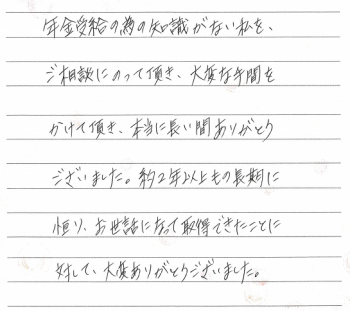 年金受給の為の知識がない私を、
ご相談にのって頂き、大変な手間を
かけて頂き、本当に長い間ありがとう
ございました。約2年以上もの長期に
恒り、お世話になって取得できたことに
対して、大変ありがとうございました。